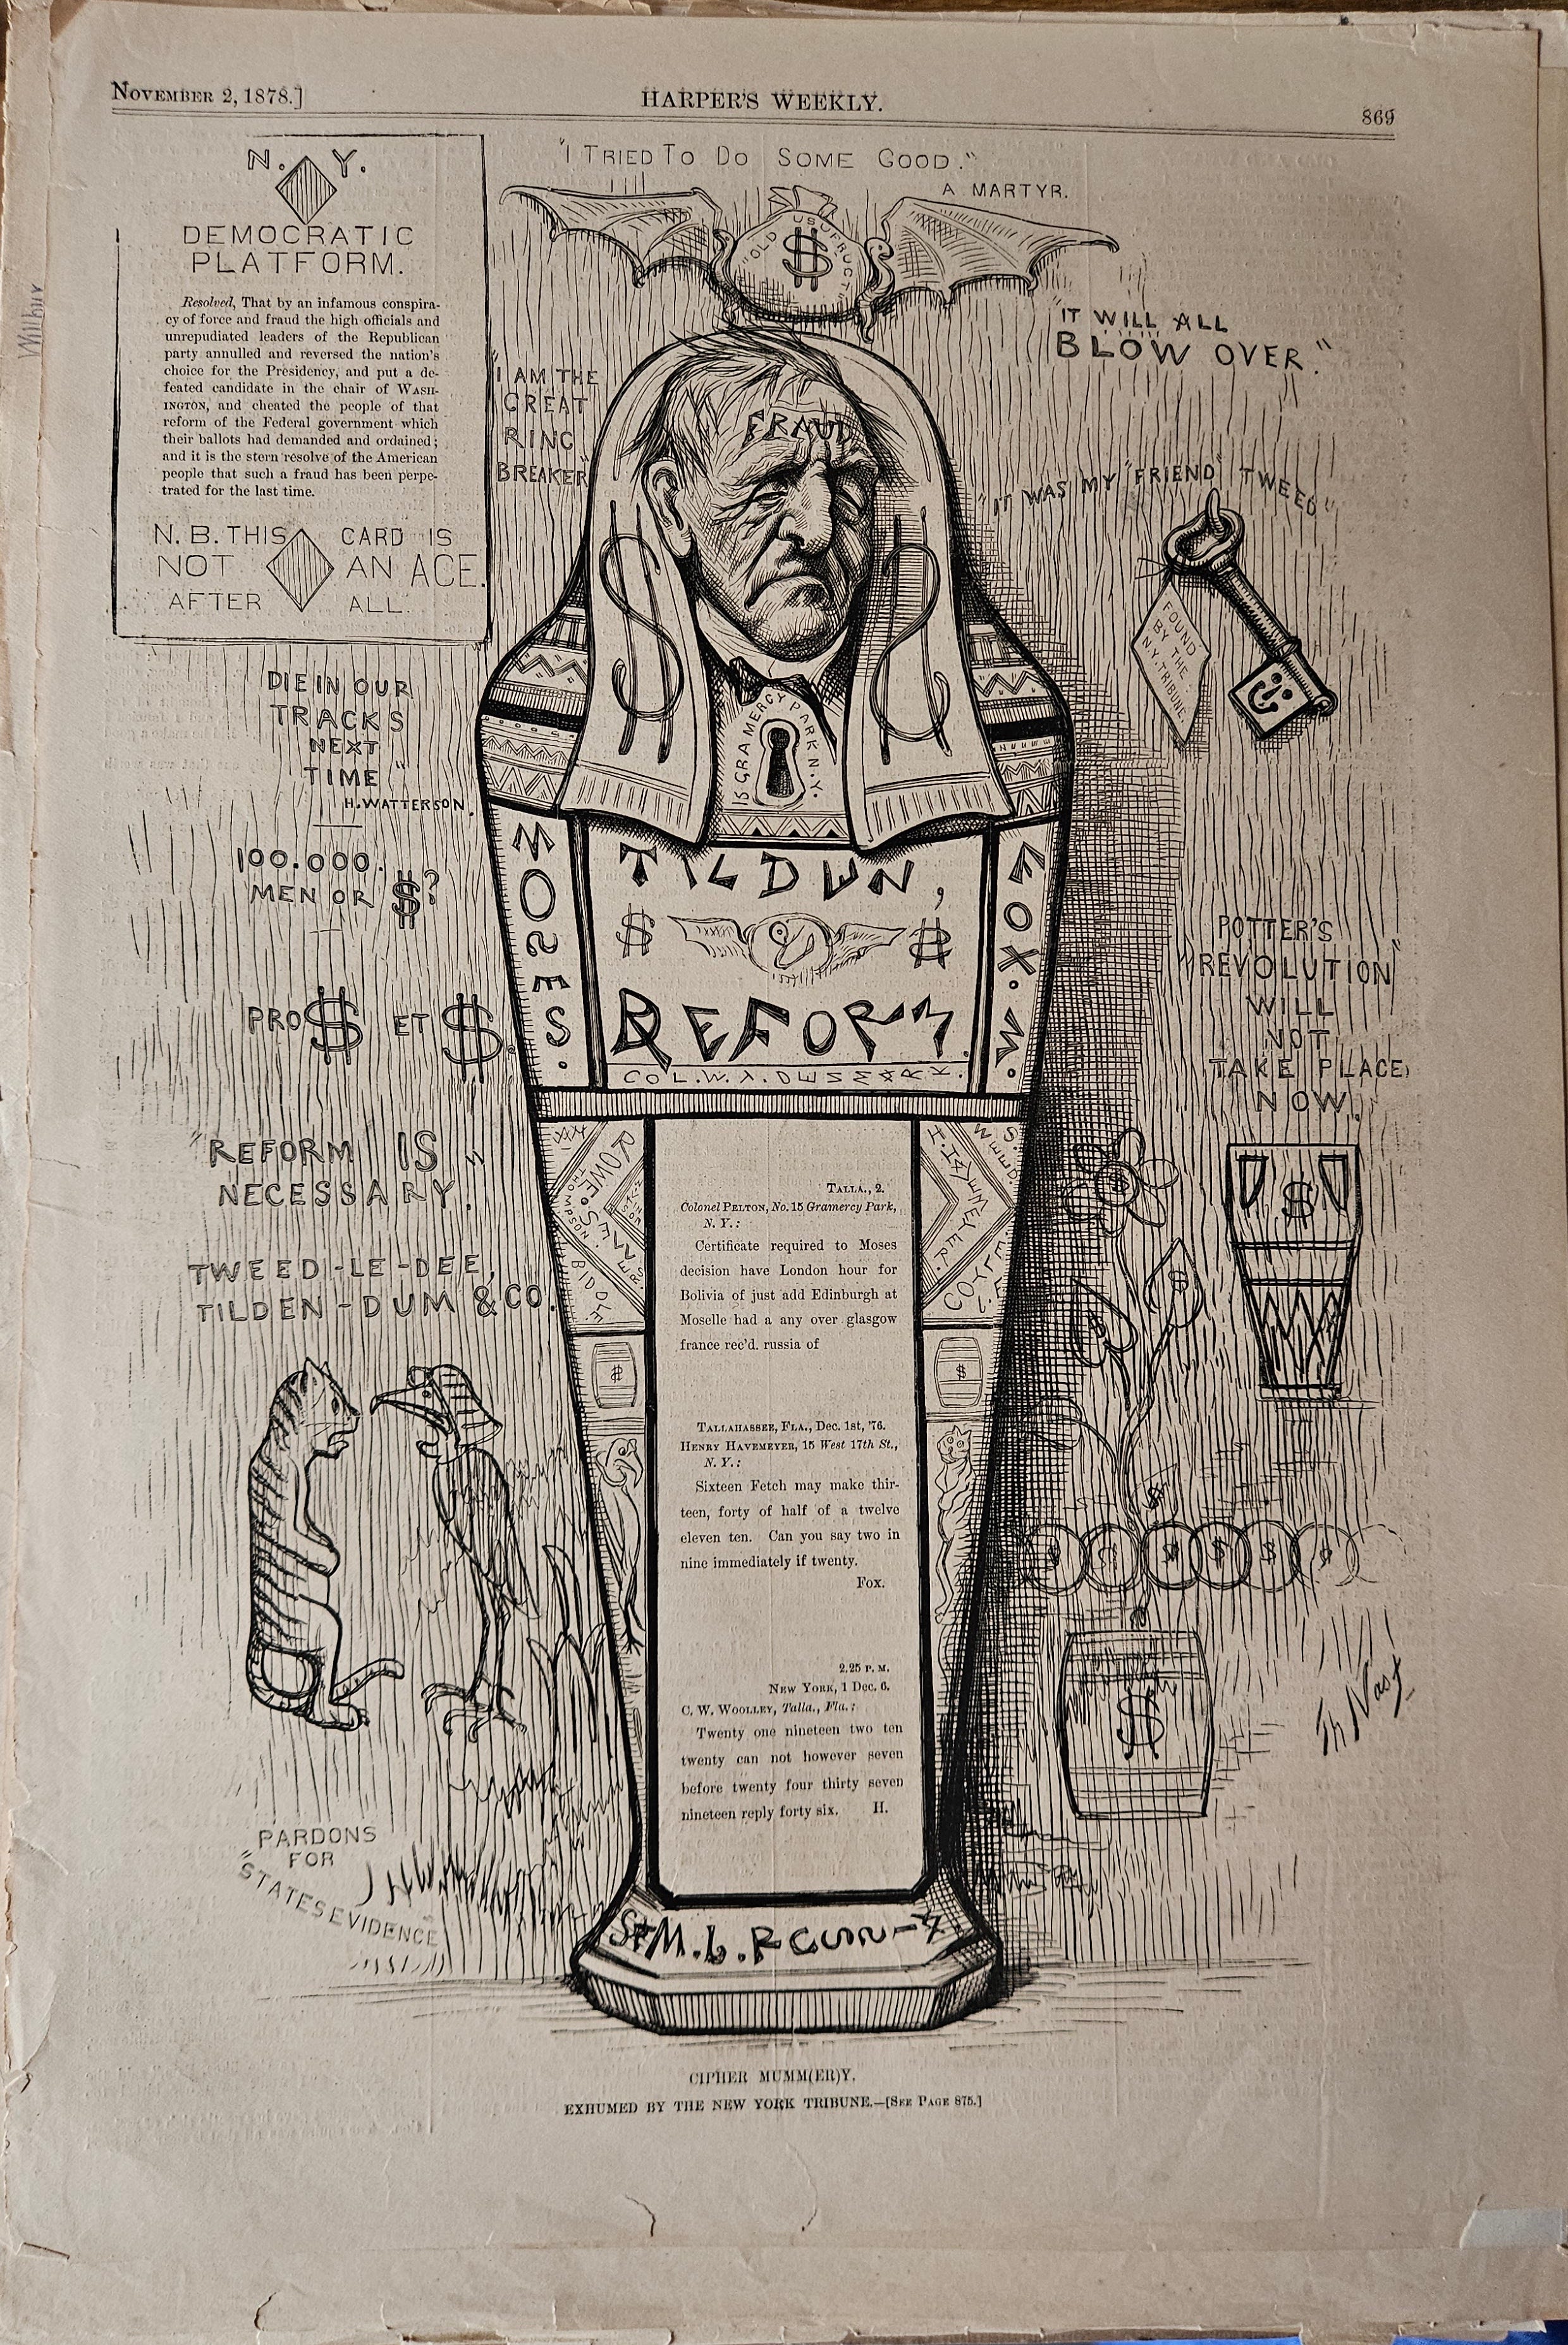 NOVEMBER 2, 1878.]
HARPER'S WEEKLY.
869
N. Y.
DEMOCRATIC
PLATFORM.
Resolved, That by an infamous conspira-
cy of force and fraud the high officials and
unrepudiated leaders of the Republican
party annulled and reversed the nation's
choice for the Presidency, and put a de-
feated candidate in the chair of WASH-
INGTON, and cheated the people of that
reform of the Federal government which
their ballots had demanded and ordained;
and it is the stern resolve of the American
people that such a fraud has been perpe-
trated for the last time.
N.B. THIS CARD IS
NOT AN ACE
AFTER ALL.
"I TRIED TO DO SOME GOOD."
A MARTYR.
"OLD USUFRUCT"
$
"IT WILL ALL
BLOW OVER."
"I AM THE
GREAT
RING
BREAKER"
FRAUD
"IT WAS MY "FRIEND" TWEED"
FOUND
BY THE
N.Y. TRIBUNE.
$ $
15 GRAMERCY PARK N.Y.
DIE IN OUR
TRACKS
NEXT
TIME"
H. WATTERSON.
100.000.
MEN OR $?
PRO $ ET $.
"REFORM IS
NECESSARY."
TWEED-LE-DEE,
TILDEN-DUM & CO.
MOSES.
TILDEN,
$ $
REFORM.
FOX. W.
POTTER'S
"REVOLUTION"
WILL
NOT
TAKE PLACE
NOW.
ROWE.
THOMPSON.
BIDDLE.
COYLE.
TALLA., 2.
Colonel PELTON, No. 15 Gramercy Park,
N. Y.:
Certificate required to Moses
decision have London hour for
Bolivia of just add Edinburgh at
Moselle had a any over glasgow
france rec'd. russia of
TALLAHASSEE, FLA., Dec. 1st, '76.
HENRY HAVEMEYER, 15 West 17th St.,
N. Y.:
Sixteen Fetch may make thir-
teen, forty of half of a twelve
eleven ten. Can you say two in
nine immediately if twenty.
Fox.
2.25 P. M.
NEW YORK, 1 Dec. 6.
C. W. WOOLLEY, Talla., Fla.:
Twenty one nineteen two ten
twenty can not however seven
before twenty four thirty seven
nineteen reply forty six. H.
Th Nast
PARDONS
FOR
"STATES EVIDENCE
CIPHER MUMM(ER)Y.
EXHUMED BY THE NEW YORK TRIBUNE.—[SEE PAGE 875.]